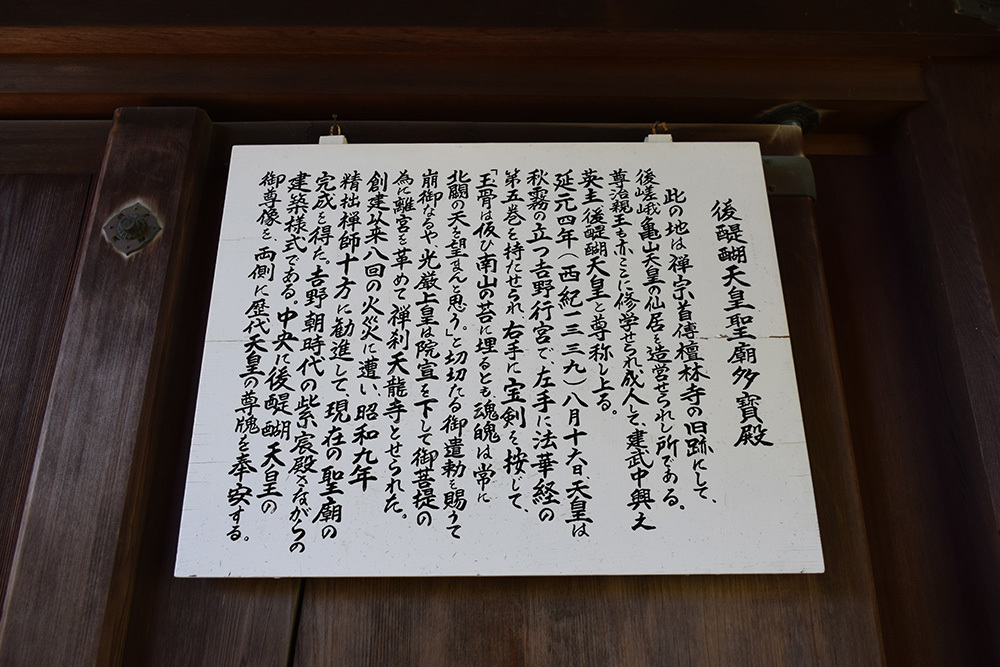 後醍醐天皇聖廟多寶殿
此の地は禅宗首傳檀林寺の旧跡にして、
後嵯峨亀山天皇の仙居を造営せられし所である。
尊治親王も亦こゝに修学せられ、成人して、建武中興之
英主後醍醐天皇と尊称し上る。
延元四年(西紀一三三九)八月十六日、天皇は
秋霧の立つ吉野行宮で、左手に法華経の
第五巻を持たせられ、右手に宝剣を按じて、
「玉骨は仮ひ南山の苔に埋るとも、魂魄は常に
北闕の天を望まんと思う」と切切たる御遺勅を賜うて
崩御なるや、光厳上皇は院宣を下して御菩提の
為に離宮を革めて禅刹天龍寺とせられた。
創建以来八回の火災に遭い、昭和九年
精拙禅師十方に勧進して、現在の聖廟の
完成を得た。吉野朝時代の紫宸殿さながらの
建築様式である。中央に後醍醐天皇の
御尊像を、両側に歴代天皇の尊牌を奉安する。